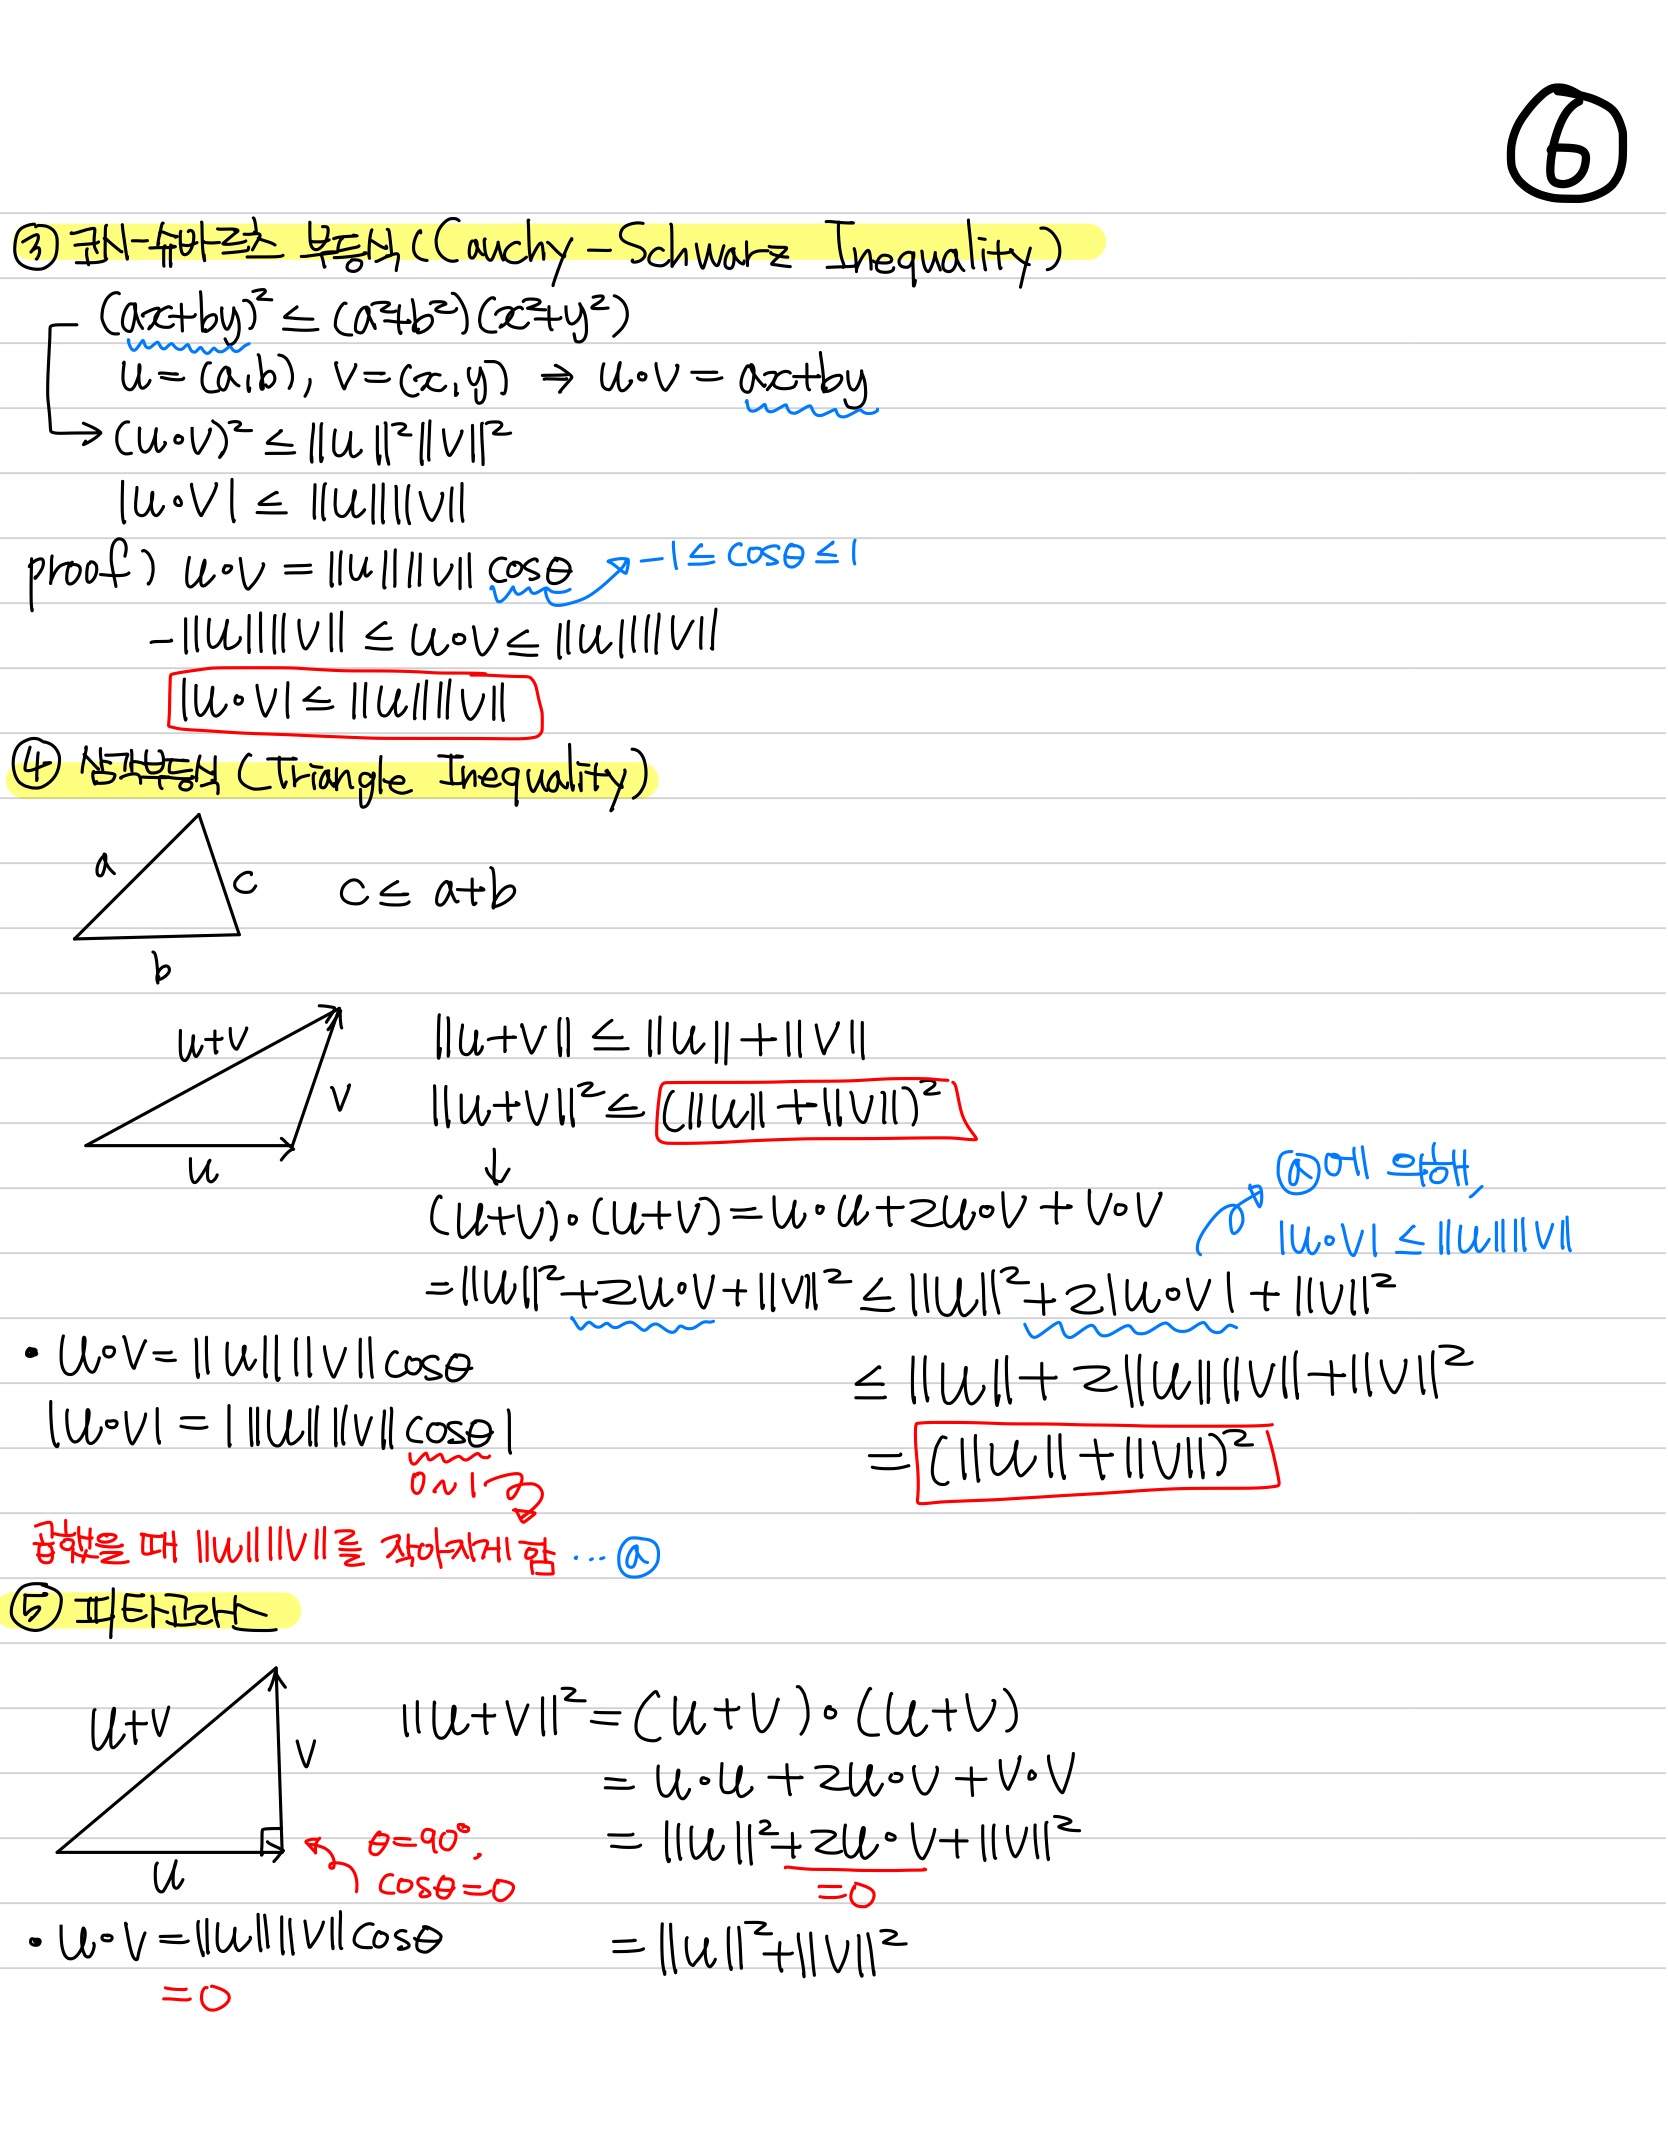 ⑥
③ 코시-슈바르츠 부등식 (Cauchy-Schwarz Inequality)
(ax+by)² ≤ (a²+b²)(x²+y²)
u=(a,b), v=(x,y) ⇒ u∘v = ax+by
(u∘v)² ≤ ||u||²||v||²
|u∘v| ≤ ||u||||v||
proof) u∘v = ||u||||v|| cosθ → -1 ≤ cosθ ≤ 1
-||u||||v|| ≤ u∘v ≤ ||u||||v||
|u∘v| ≤ ||u||||v||
④ 삼각부등식 (Triangle Inequality)
a
c
c ≤ a+b
b
u+v
v
u
||u+v|| ≤ ||u||+||v||
||u+v||² ≤ (||u||+||v||)²
↓
ⓐ에 의해,
|u∘v| ≤ ||u||||v||
(u+v)∘(u+v) = u∘u+2u∘v+v∘v
=||u||²+2u∘v+||v||² ≤ ||u||²+2|u∘v|+||v||²
≤ ||u||+2||u||||v||+||v||²
= (||u||+||v||)²
• u∘v = ||u||||v||cosθ
|u∘v| = | ||u||||v||cosθ|
0~1
곱했을 때 ||u||||v||를 작아지게 함 … ⓐ
⑤ 피타고라스
u+v
v
u
θ=90°,
cosθ=0
||u+v||² = (u+v)∘(u+v)
= u∘u+2u∘v+v∘v
= ||u||²+2u∘v+||v||²
=0
= ||u||²+||v||²
• u∘v = ||u||||v||cosθ
=0